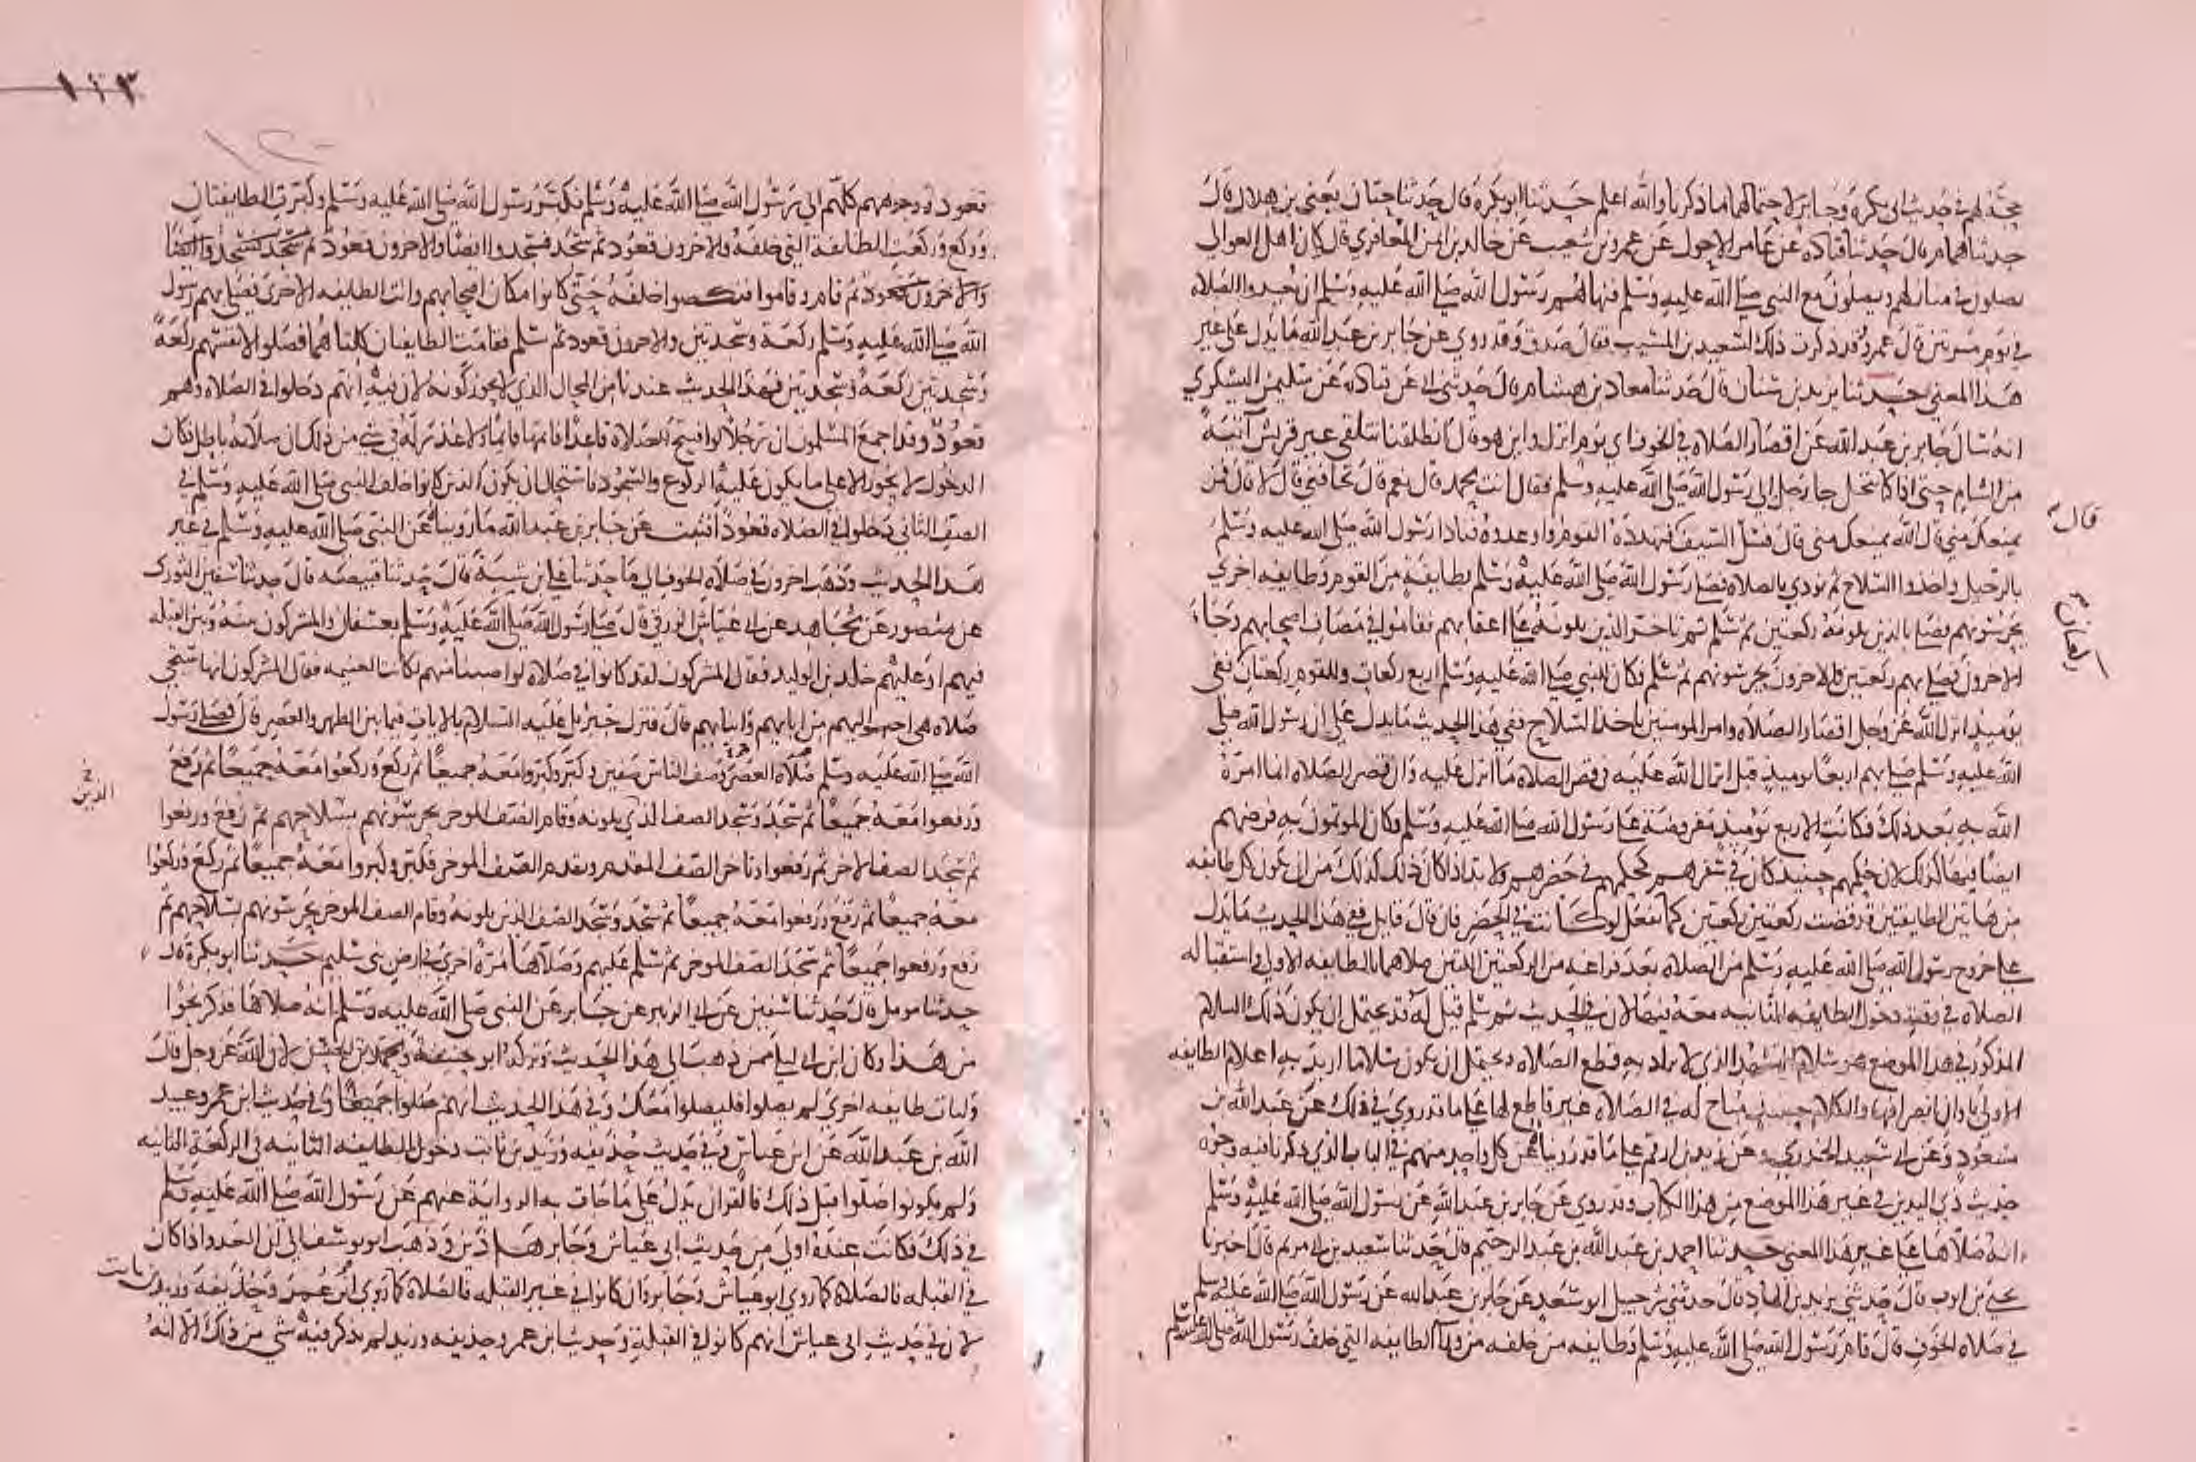 حجة لهم في حديث ابي بكرة وجابر لاحتمالهما ما ذكرنا والله اعلم حدثنا ابو بكرة قال حدثنا حبان يعني بن هلال قال
حدثنا همام قال حدثنا قتادة عن عامر الاحول عن عمرو بن شعيب عن خالد بن ايمن المعافري قال كان اهل العوالي
يصلون في منازلهم ويصلون مع النبي صلى الله عليه وسلم فنهاهم رسول الله صلى الله عليه وسلم ان يعيدوا الصلاه
في يوم مرتين قال عمرو قد ذكرت ذلك لسعيد بن المسيب فقال صدق وقد روي عن جابر بن عبد الله ما يدل على غير
هذا المعني حدثنا يزيد بن سنان قال حدثنا معاذ بن هشام قال حدثني ابي عن قتادة عن سليمن اليشكري
انه سال جابر بن عبد الله عن اقصار الصلاه في الخوف اي يوم انزل واين هو قال انطلقنا نتلقى عير قريش آتية
من الشام حتى اذا كنا بنخل جا رجل الى رسول الله صلى الله عليه وسلم فقال انت محمد قال نعم قال تخافني قال لا قال فمن
قال
يمنعك مني قال الله يمنعك مني قال فسل السيف فتهدده القوم واوعدوه فنادا رسول الله صلى الله عليه وسلم
بالرحيل واخذوا السلاح ثم نودي بالصلاه فصلى رسول الله صلى الله عليه وسلم بطايفة من القوم وطايفه اخرى
يحرسونهم فصلى بالذين يلونه ركعتين ثم سلم ثم تاخر الذين يلونه على اعقابهم فقاموا في مصاف اصحابهم وجاء
الاخرون فصلى بهم ركعتين والاخرون يحرسونهم ثم سلم فكان للنبي صلى الله عليه وسلم اربع ركعات وللقوم ركعتان ففي
يوميذ انزل الله عز وجل اقصار الصلاه وامر المومنين باخذ السلاح ففي هذا الحديث ما يدل على ان رسول الله صلى
الله عليه وسلم صلى بهم اربعا يوميذ قبل انزال الله عليه في قصر الصلاه ما انزل عليه وان قصر الصلاه انما امره
الله به بعد ذلك فكانت الاربع يوميذ مفروضة على رسول الله صلى الله عليه وسلم وكان الموتمون به فرضهم
ايضا فيها كذلك لان حكمهم حينيذ كان في سفرهم كحكمهم في حضرهم ولا بد اذا كان ذلك كذلك من ان يكون كل طايفه
من هاتين الطايفتين قد قضت ركعتين ركعتين كما تفعل لو كانت في الحضر فان قال قايل ففي هذا الحديث ما يدل
على خروج رسول الله صلى الله عليه وسلم من الصلاه بعد فراغه من الركعتين اللتين صلاهما بالطايفه الاولى واستقباله
الصلاه في وقت دخول الطايفه الثانيه معه فيها لان في الحديث ثم سلم قيل له قد يحتمل ان يكون ذلك السلام
المذكور في هذا الموضع هو سلام التشهد الذي لا يراد به قطع الصلاه ويحتمل ان يكون سلاما اريد به اعلام الطايفه
الاولى باوان انصرافها والكلام حينيذ مباح له في الصلاه غير قاطع لها على ما قد روي في ذلك عن عبد الله بن
مسعود وعن ابي سعيد الخدري وعن زيد بن ارقم على ما قد روينا عن كل واحد منهم في الباب الذي ذكرنا فيه وجوه
حديث ذي اليدين في غير هذا الموضع من هذا الكتاب وقد روي عن جابر بن عبد الله عن رسول الله صلى الله عليه وسلم
انه صلاها على غير هذا المعني حدثنا احمد بن عبد الله بن عبد الرحيم قال حدثنا سعيد بن ابي مريم قال اخبرنا
يحيى بن ايوب قال حدثني يزيد بن الهاد قال حدثني شرحبيل ابو سعد عن جابر بن عبد الله عن رسول الله صلى الله عليه وسلم
في صلاه الخوف قال قام رسول الله صلى الله عليه وسلم وطايفه من خلفه من ورا الطايفه التي خلف رسول الله صلى الله عليه وسلم
قعود وجوههم كلهم الى رسول الله صلى الله عليه وسلم فكبر رسول الله صلى الله عليه وسلم وكبرت الطايفتان
وركع وركعت الطايفة التي خلفه والاخرون قعود ثم سجد فسجدوا ايضا والاخرون قعود ثم
والاخرون قعود ثم قام وقاموا فنكصوا خلفه حتى كانوا مكان اصحابهم واتت الطايفه الاخرى فصلى بهم رسول
الله صلى الله عليه وسلم ركعة وسجدتين والاخرون قعود ثم سلم فقامت الطايفتان كلتاهما فصلوا لانفسهم ركعة
وسجدتين ركعة وسجدتين فهذا الحديث عندنا من المحال الذي لا يجوز كونه لان فيه انهم دخلوا في الصلاه وهم
قعود وقد اجمع المسلمون ان رجلا لو افتتح الصلاة قاعدا ثم اتمها قايما ولا عذر له في شي من ذلك ان صلاته باطل فكان
الدخول لا يجوز الا على ما يكون عليه الركوع والسجود فاستحال ان يكون الذين كانوا خلف النبي صلى الله عليه وسلم في
الصف الثاني دخلوا في الصلاه قعودا فثبت عن جابر بن عبد الله ما رويناه عن النبي صلى الله عليه وسلم في غير
هذا الحديث وذهب اخرون في صلاه الخوف الى ما حدثنا علي بن شيبة قال حدثنا قبيصه قال حدثنا سفين الثوري
عن منصور عن مجاهد عن ابي عياش الزرقي قال صلى رسول الله صلى الله عليه وسلم بعسفان والمشركون بينه وبين القبله
فيهم او عليهم خلد بن الوليد فقال المشركون لقد كانوا في صلاة لو اصبنا منهم لكانت الغنيمه فقال المشركون انها ستجي
صلاه هي احب اليهم من ابايهم وابنايهم قال فنزل جبريل عليه السلام بالايات فيما بين الظهر والعصر قال فصلى رسول
الله صلى الله عليه وسلم صلاه العصر وصف الناس صفين وكبر وكبروا معه جميعا ثم ركع وركعوا معه جميعا ثم رفع
الذين
ورفعوا معه جميعا ثم سجد وسجد الصف الذي يلونه وقام الصف الموخر يحرسونهم بسلاحهم ثم رفع ورفعوا
ثم سجد الصف الاخر ثم رفعوا وتاخر الصف المقدم وتقدم الصف الموخر فكبر وكبروا معه جميعا ثم ركع وركعوا
معه جميعا ثم رفع ورفعوا معه جميعا ثم سجد وسجد الصف الذين يلونه وقام الصف الموخر يحرسونهم بسلاحهم ثم
رفع ورفعوا جميعا ثم سجد الصف الموخر ثم سلم عليهم وصلاها مرة اخرى في ارض بني سليم حدثنا ابو بكرة قال
حدثنا مومل قال حدثنا سفين عن ابي الزبير عن جابر عن النبي صلى الله عليه وسلم انه صلاها فذكر نحوا
من هذا وكان ابن ابي ليلى ممن ذهب الى هذا الحديث وتركه ابو حنيفة ومحمد بن الحسن لان الله عز وجل قال
ولتات طايفه اخرى لم يصلوا فليصلوا معك وفي هذا الحديث انهم صلوا جميعا وفي حديث ابن عمر وعبيد
الله بن عبد الله عن ابن عباس وفي حديث حذيفه وزيد بن ثابت دخول الطايفه الثانيه في الركعة الثانيه
ولم يكونوا صلوا قبل ذلك فالقران يدل على ما جات به الرواية عنهم عن رسول الله صلى الله عليه وسلم
في ذلك فكانت عنده اولى من حديث ابي عياش وجابر هذين وذهب ابو يوسف الى ان العدو اذا كان
في القبله فالصلاة كما روى ابو عياش وجابر وان كانوا في غير القبله فالصلاة كما روى ابن عمر وحذيفه وزيد بن ثابت
لان في حديث ابي عياش انهم كانوا في القبلة وحديث ابن عمر وحذيفه وزيد لم يذكر فيه شي من ذلك الا انه